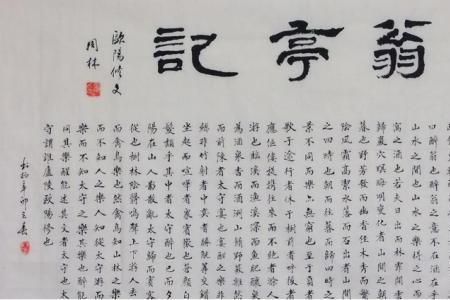 翁亭記
歐陽修文
周林
醉翁也醉翁之意不在酒
山水之樂得之心而
寓之酒也若夫日出而林霏開
歸巖穴暝晦明變化者山間之朝
暮也野芳發而幽香佳木秀而
陰風霜高潔水落而石出者山
之四時也朝而往暮而歸四時之
景不同而樂亦無窮也至於負者
歌于途行者休于樹前者呼後者
應傴僂提攜往來而不絕者滁人
游也臨溪而漁溪深而魚肥釀泉
為酒泉香而酒洌山肴野蔌雜然
而前陳者太守宴也宴酣之樂非
絲非竹射者中弈者勝觥籌交錯
坐起而喧嘩者眾賓懽也蒼顏白
髮頹乎其中者太守醉也已而夕
陽在山人影散亂太守歸而賓客
從也樹林陰翳鳴聲上下游人去
而禽鳥樂也然禽鳥知山林之樂
而不知人之樂人知從太守游而
樂而不知太守之樂其樂也
同其樂醒能述其文者太守也太
守謂誰廬陵歐陽修也
辛卯之春